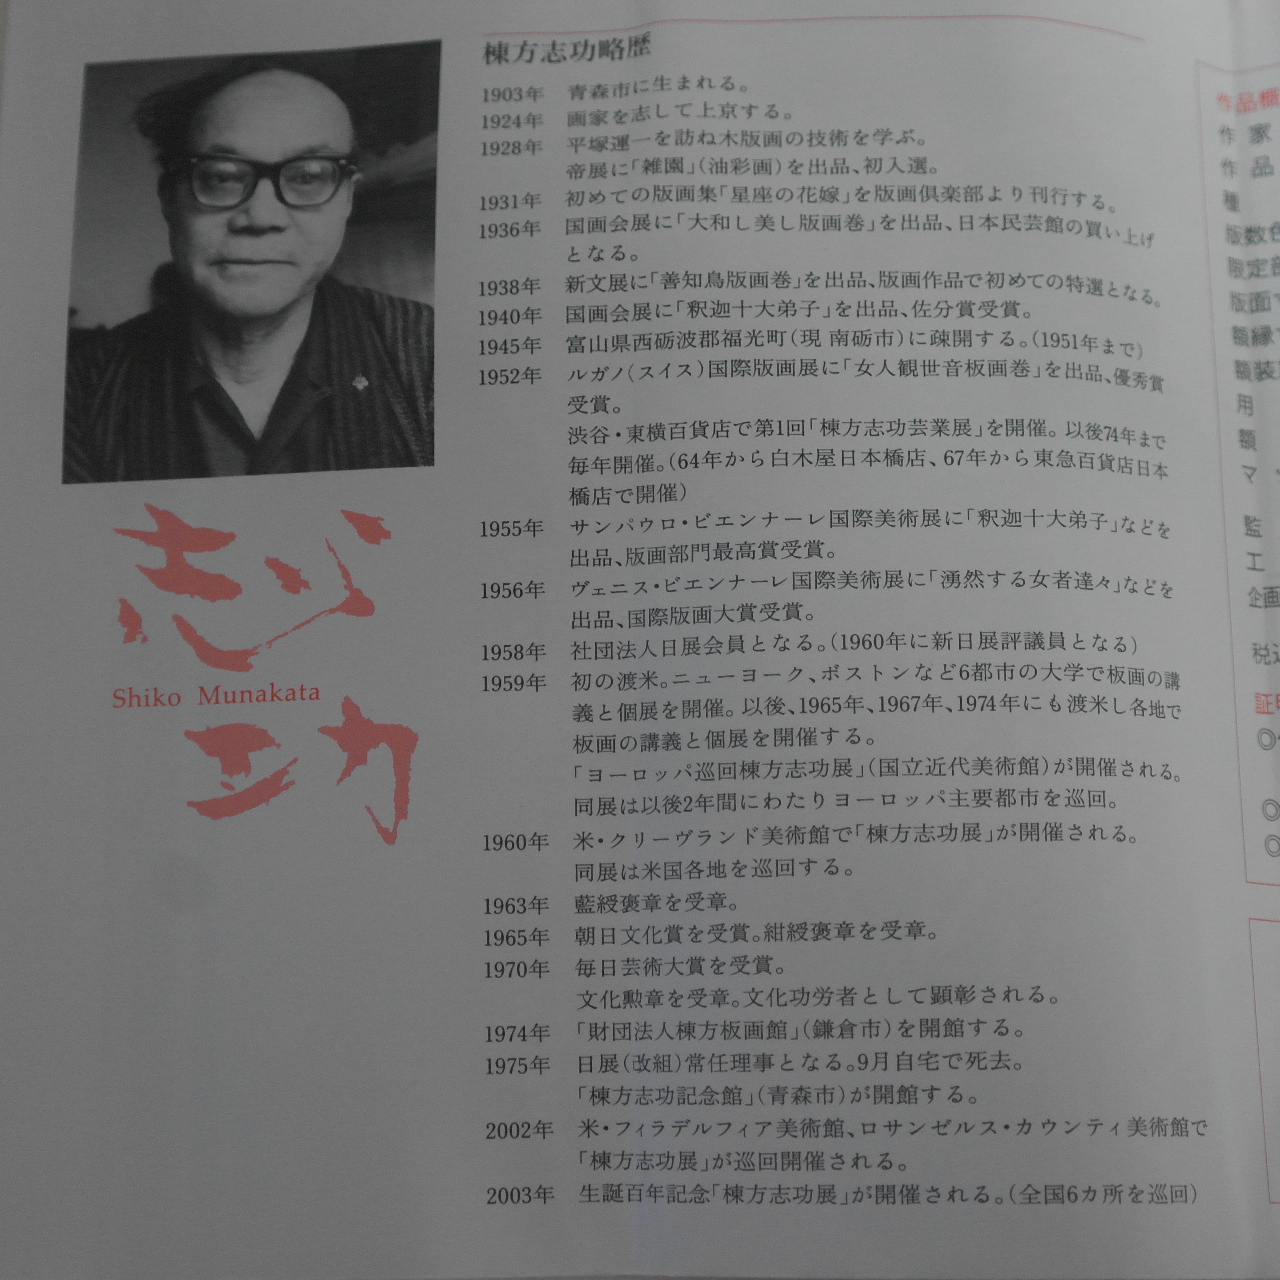 棟方志功略歴
1903年 青森市に生まれる。
1924年 画家を志して上京する。
1928年 平塚運一を訪ね木版画の技術を学ぶ。
帝展に「雑園」(油彩画)を出品、初入選。
1931年 初めての版画集「星座の花嫁」を版画倶楽部より刊行する。
1936年 国画会展に「大和し美し版画巻」を出品、日本民芸館の買い上げ
となる。
1938年 新文展に「善知鳥版画巻」を出品、版画作品で初めての特選となる。
1940年 国画会展に「釈迦十大弟子」を出品、佐分賞受賞。
1945年 富山県西砺波郡福光町(現 南砺市)に疎開する。(1951年まで)
1952年 ルガノ(スイス)国際版画展に「女人観世音板画巻」を出品、優秀賞
受賞。
渋谷・東横百貨店で第1回「棟方志功芸業展」を開催。以後74年まで
毎年開催。(64年から白木屋日本橋店、67年から東急百貨店日本
橋店で開催)
1955年 サンパウロ・ビエンナーレ国際美術展に「釈迦十大弟子」などを
出品、版画部門最高賞受賞。
1956年 ヴェニス・ビエンナーレ国際美術展に「湧然する女者達々」などを
出品、国際版画大賞受賞。
1958年 社団法人日展会員となる。(1960年に新日展評議員となる)
1959年 初の渡米。ニューヨーク、ボストンなど6都市の大学で板画の講
義と個展を開催。以後、1965年、1967年、1974年にも渡米し各地で
板画の講義と個展を開催する。
「ヨーロッパ巡回棟方志功展」(国立近代美術館)が開催される。
同展は以後2年間にわたりヨーロッパ主要都市を巡回。
1960年 米・クリーヴランド美術館で「棟方志功展」が開催される。
同展は米国各地を巡回する。
1963年 藍綬褒章を受章。
1965年 朝日文化賞を受賞。紺綬褒章を受章。
1970年 毎日芸術大賞を受賞。
文化勲章を受章。文化功労者として顕彰される。
1974年 「財団法人棟方板画館」(鎌倉市)を開館する。
1975年 日展(改組)常任理事となる。9月自宅で死去。
「棟方志功記念館」(青森市)が開館する。
2002年 米・フィラデルフィア美術館、ロサンゼルス・カウンティ美術館で
「棟方志功展」が巡回開催される。
2003年 生誕百年記念「棟方志功展」が開催される。(全国6カ所を巡回)
志
Shiko Munakata
功
作品
作 家
作 品
種
版数
限定
版面
額縁
額装
用
額
マ
監
工
企画
税込